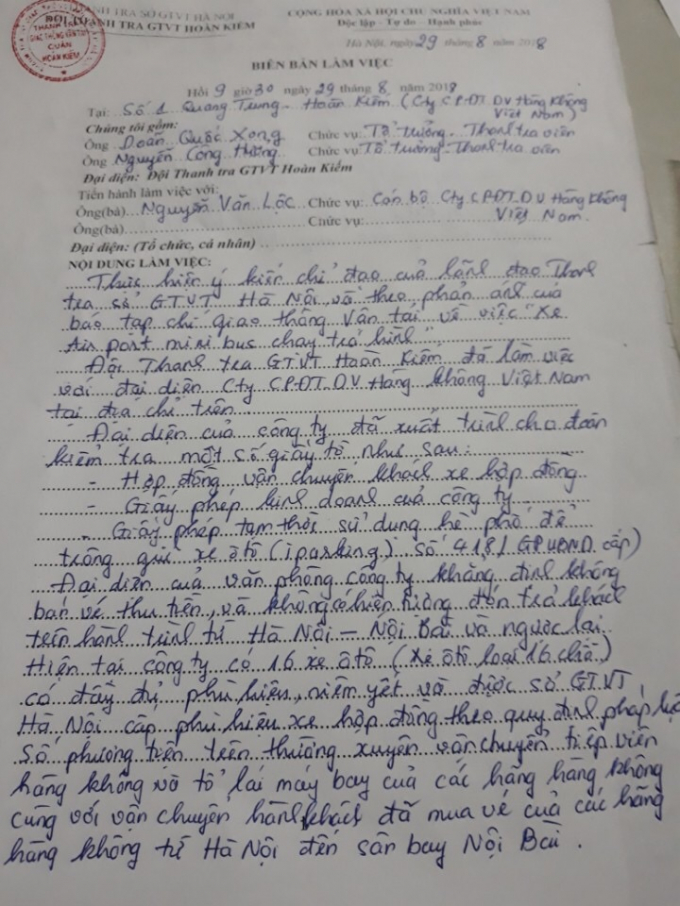 THANH TRA SỞ GTVT HÀ NỘI
CỘNG HÒA XÃ HỘI CHỦ NGHĨA VIỆT NAM
ĐỘI THANH TRA GTVT HOÀN KIẾM
Độc lập - Tự do - Hạnh phúc
Hà Nội, ngày 29 tháng 8 năm 2018
BIÊN BẢN LÀM VIỆC
Hồi 9 giờ 30 ngày 29 tháng 8 năm 2018
Tại: Số 1 Quang Trung - Hoàn Kiếm (Cty CP.ĐT.DV Hàng Không
Việt Nam)
Chúng tôi gồm:
Ông Doãn Quốc Xong Chức vụ: Tổ trưởng - Thanh tra viên
Ông Nguyễn Công Hường Chức vụ: Tổ trưởng - Thanh tra viên
Đại diện: Đội Thanh tra GTVT Hoàn Kiếm
Tiến hành làm việc với:
Ông(bà) Nguyễn Văn Lộc Chức vụ: Cán bộ Cty CP.ĐT.DV Hàng Không
Việt Nam.
Ông(bà) Chức vụ:
Đại diện: (Tổ chức, cá nhân)
NỘI DUNG LÀM VIỆC:
Thực hiện ý kiến chỉ đạo của lãnh đạo Thanh
tra sở GTVT Hà Nội và theo phản ánh của
báo tạp chí giao thông Vận tải về việc "Xe
Air port mini bus chạy trá hình"
Đội Thanh tra GTVT Hoàn Kiếm đã làm việc
với đại diện Cty CP.ĐT.DV Hàng không Việt Nam
tại địa chỉ trên
Đại diện của công ty đã xuất trình cho đoàn
kiểm tra một số giấy tờ như sau:
- Hợp đồng vận chuyển khách xe hợp đồng
- Giấy phép kinh doanh của công ty
- Giấy phép tạm thời sử dụng hè phố để
trông giữ xe ôtô (iparking) số 418/GP.UBND cấp)
Đại diện của văn phòng công ty khẳng định không
bán vé thu tiền, và không có hiện tượng đón trả khách
trên hành trình từ Hà Nội - Nội Bài và ngược lại
Hiện tại công ty có 16 xe ôtô (Xe ôtô loại 16 chỗ)
có đầy đủ phù hiệu, niêm yết và được sở GTVT
Hà Nội cấp phù hiệu xe hợp đồng theo quy định pháp luật
Số phương tiện trên thường xuyên vận chuyển tiếp viên
hàng không và tổ lái máy bay của các hãng hàng không
cùng với vận chuyển hành khách đã mua vé của các hãng
hàng không từ Hà Nội đến sân bay Nội Bài.